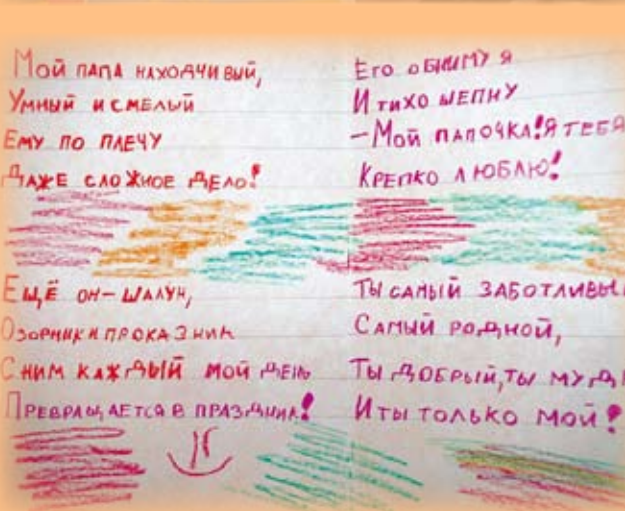 Мой папа находчивый,
Умный и смелый
Ему по плечу
Даже сложное дело!
Ещё он-шалун,
Озорник и проказник
С ним каждый мой день
Превращается в праздник!
Его обниму я
И тихо шепну
-Мой папочка! Я тебя
Крепко люблю!
Ты самый заботливый
Самый родной,
Ты добрый, ты муд
И ты только мой!